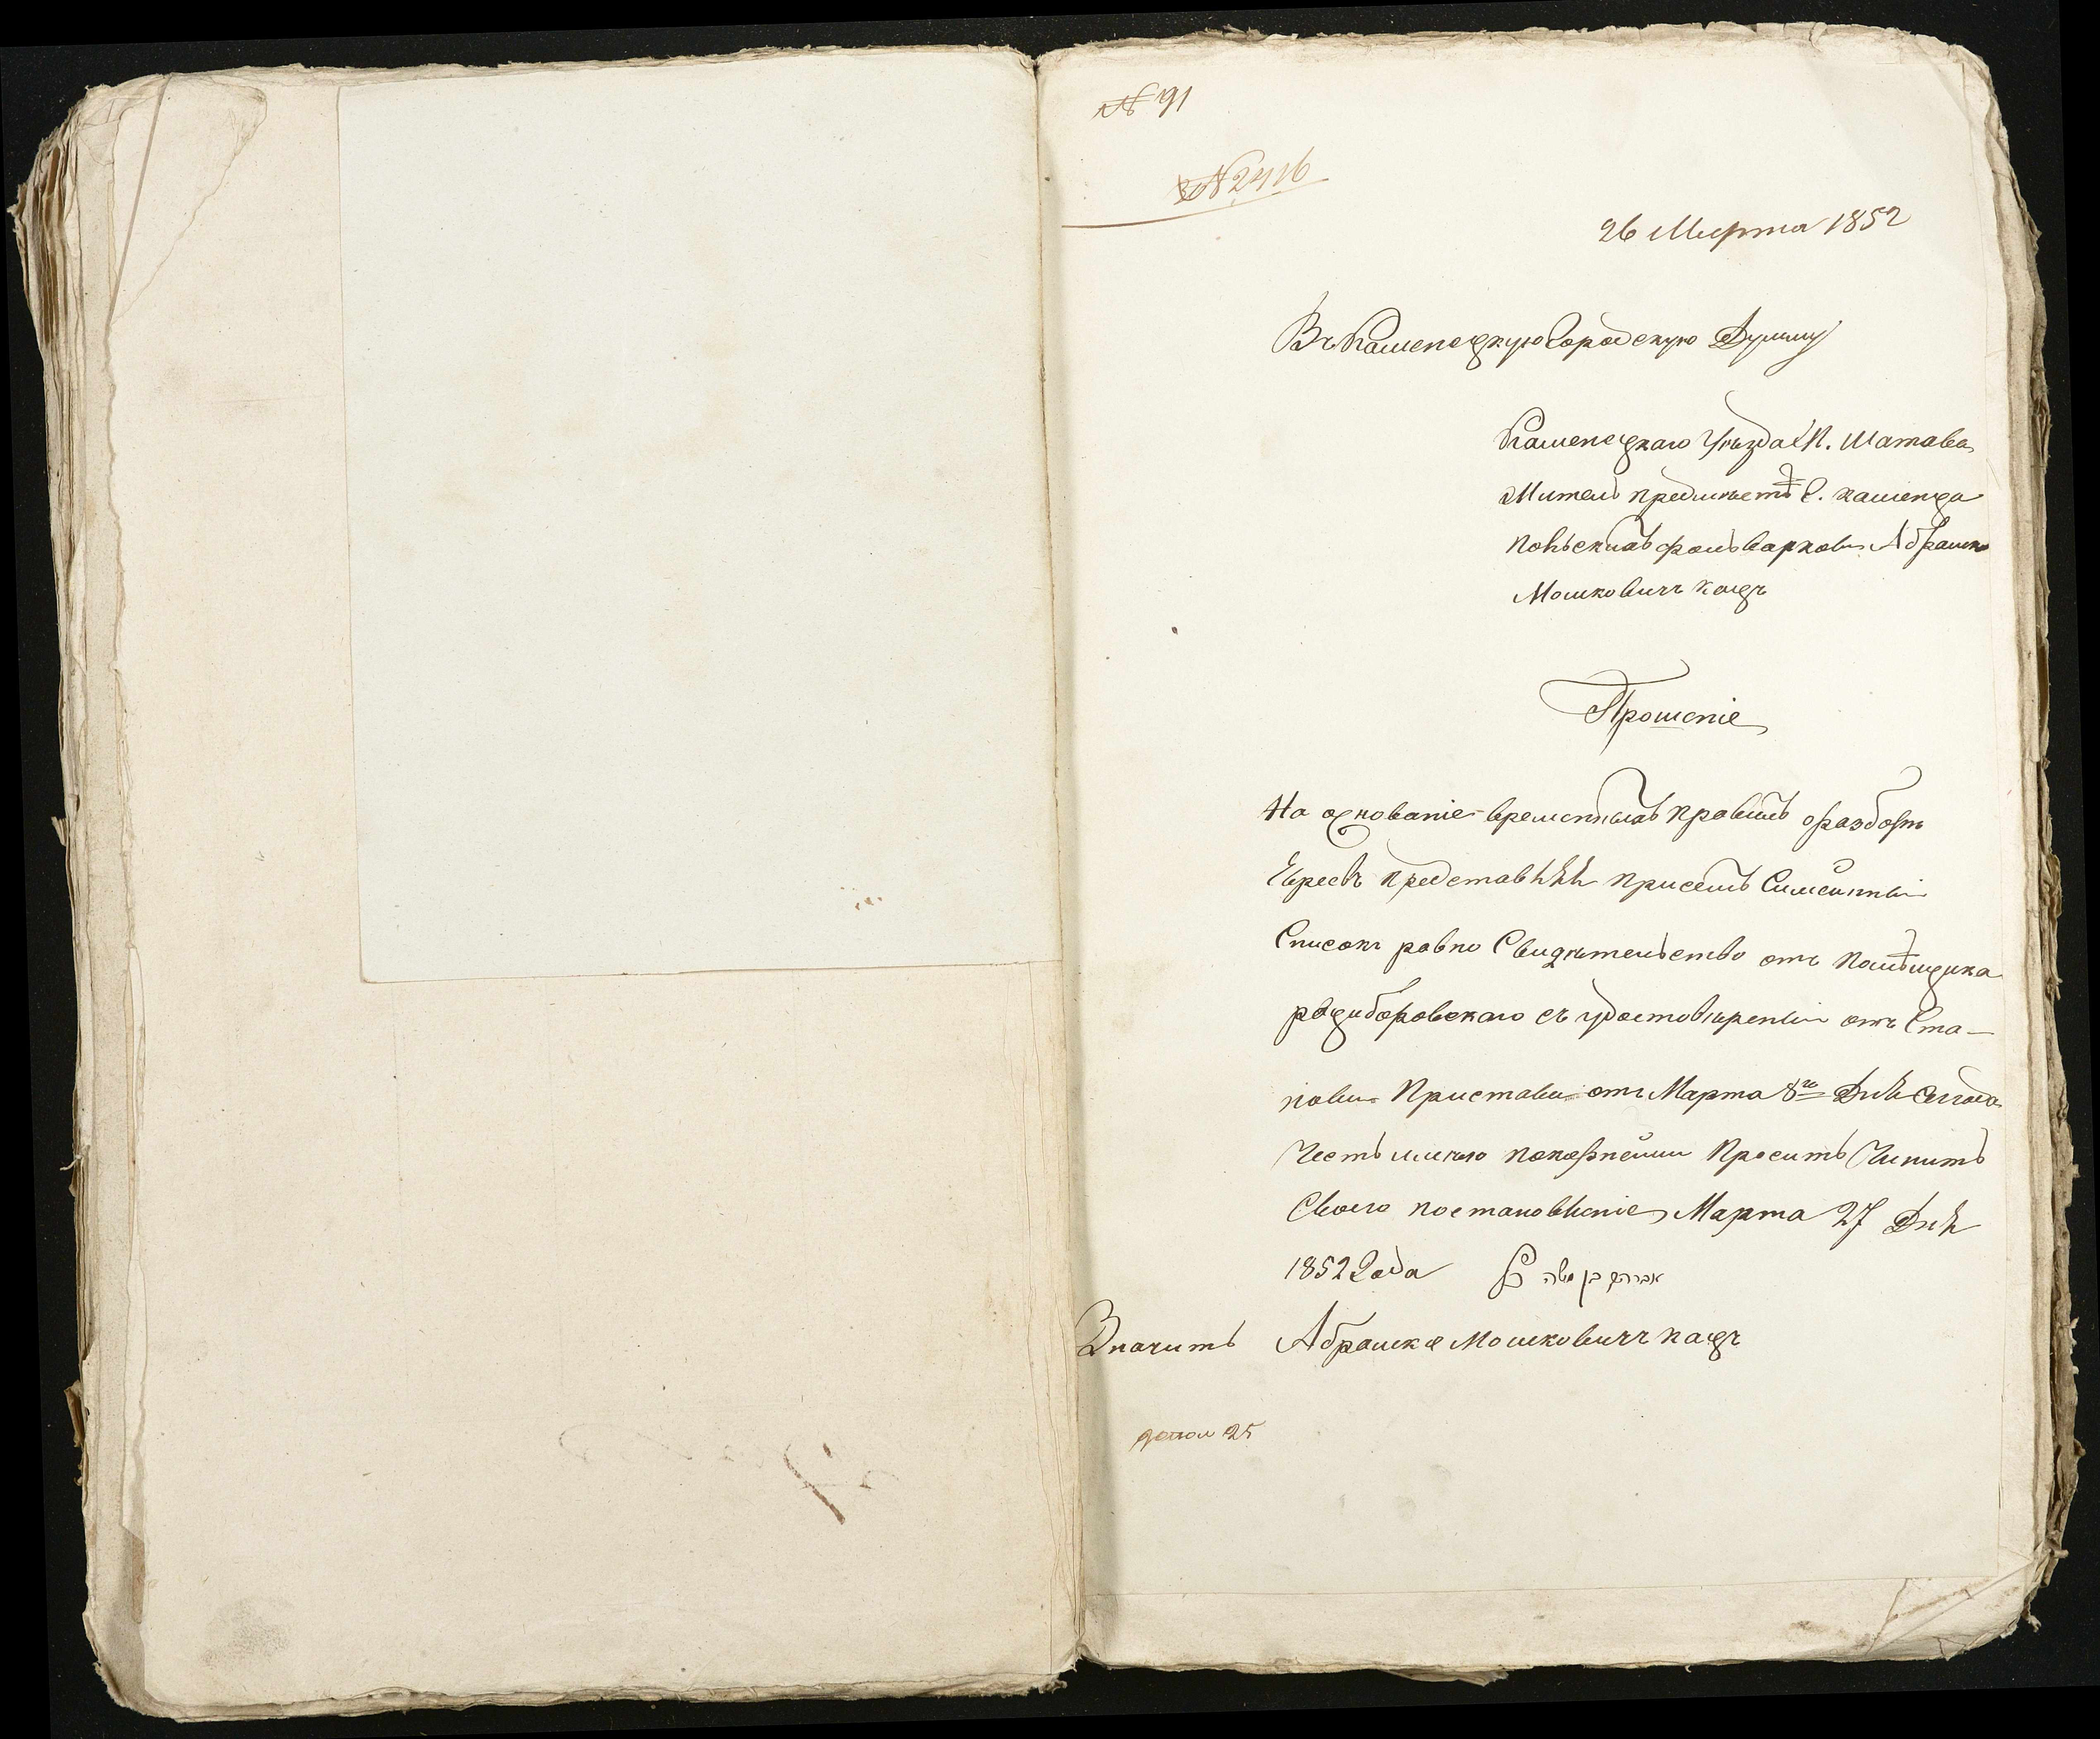 № 91
№ 2416
26 Марта 1852
Въ Каменецкую Городскую Думу
Каменецкаго Уѣзда М. Шатава
Житель предмѣстѣ Г. каменца
фольварковъ Абрашко
Мошковичъ кацъ
Прошеніе
На основаніе временныхъ правилъ о разборѣ
Евреевъ представляя присемъ Симейный
Списокъ равно Свидѣтельство отъ помѣщика
рациборовскаго съ удостовѣреніи отъ Ста-
нови Пристави отъ Марта 8го Дня сегода
Честь имѣю покорнейши Просить Чинить
Своего постановленіе Марта 27 Дня
1852 Года אברהם בן משה כץ
Значитъ Абрашка Мошковичъ кацъ
25